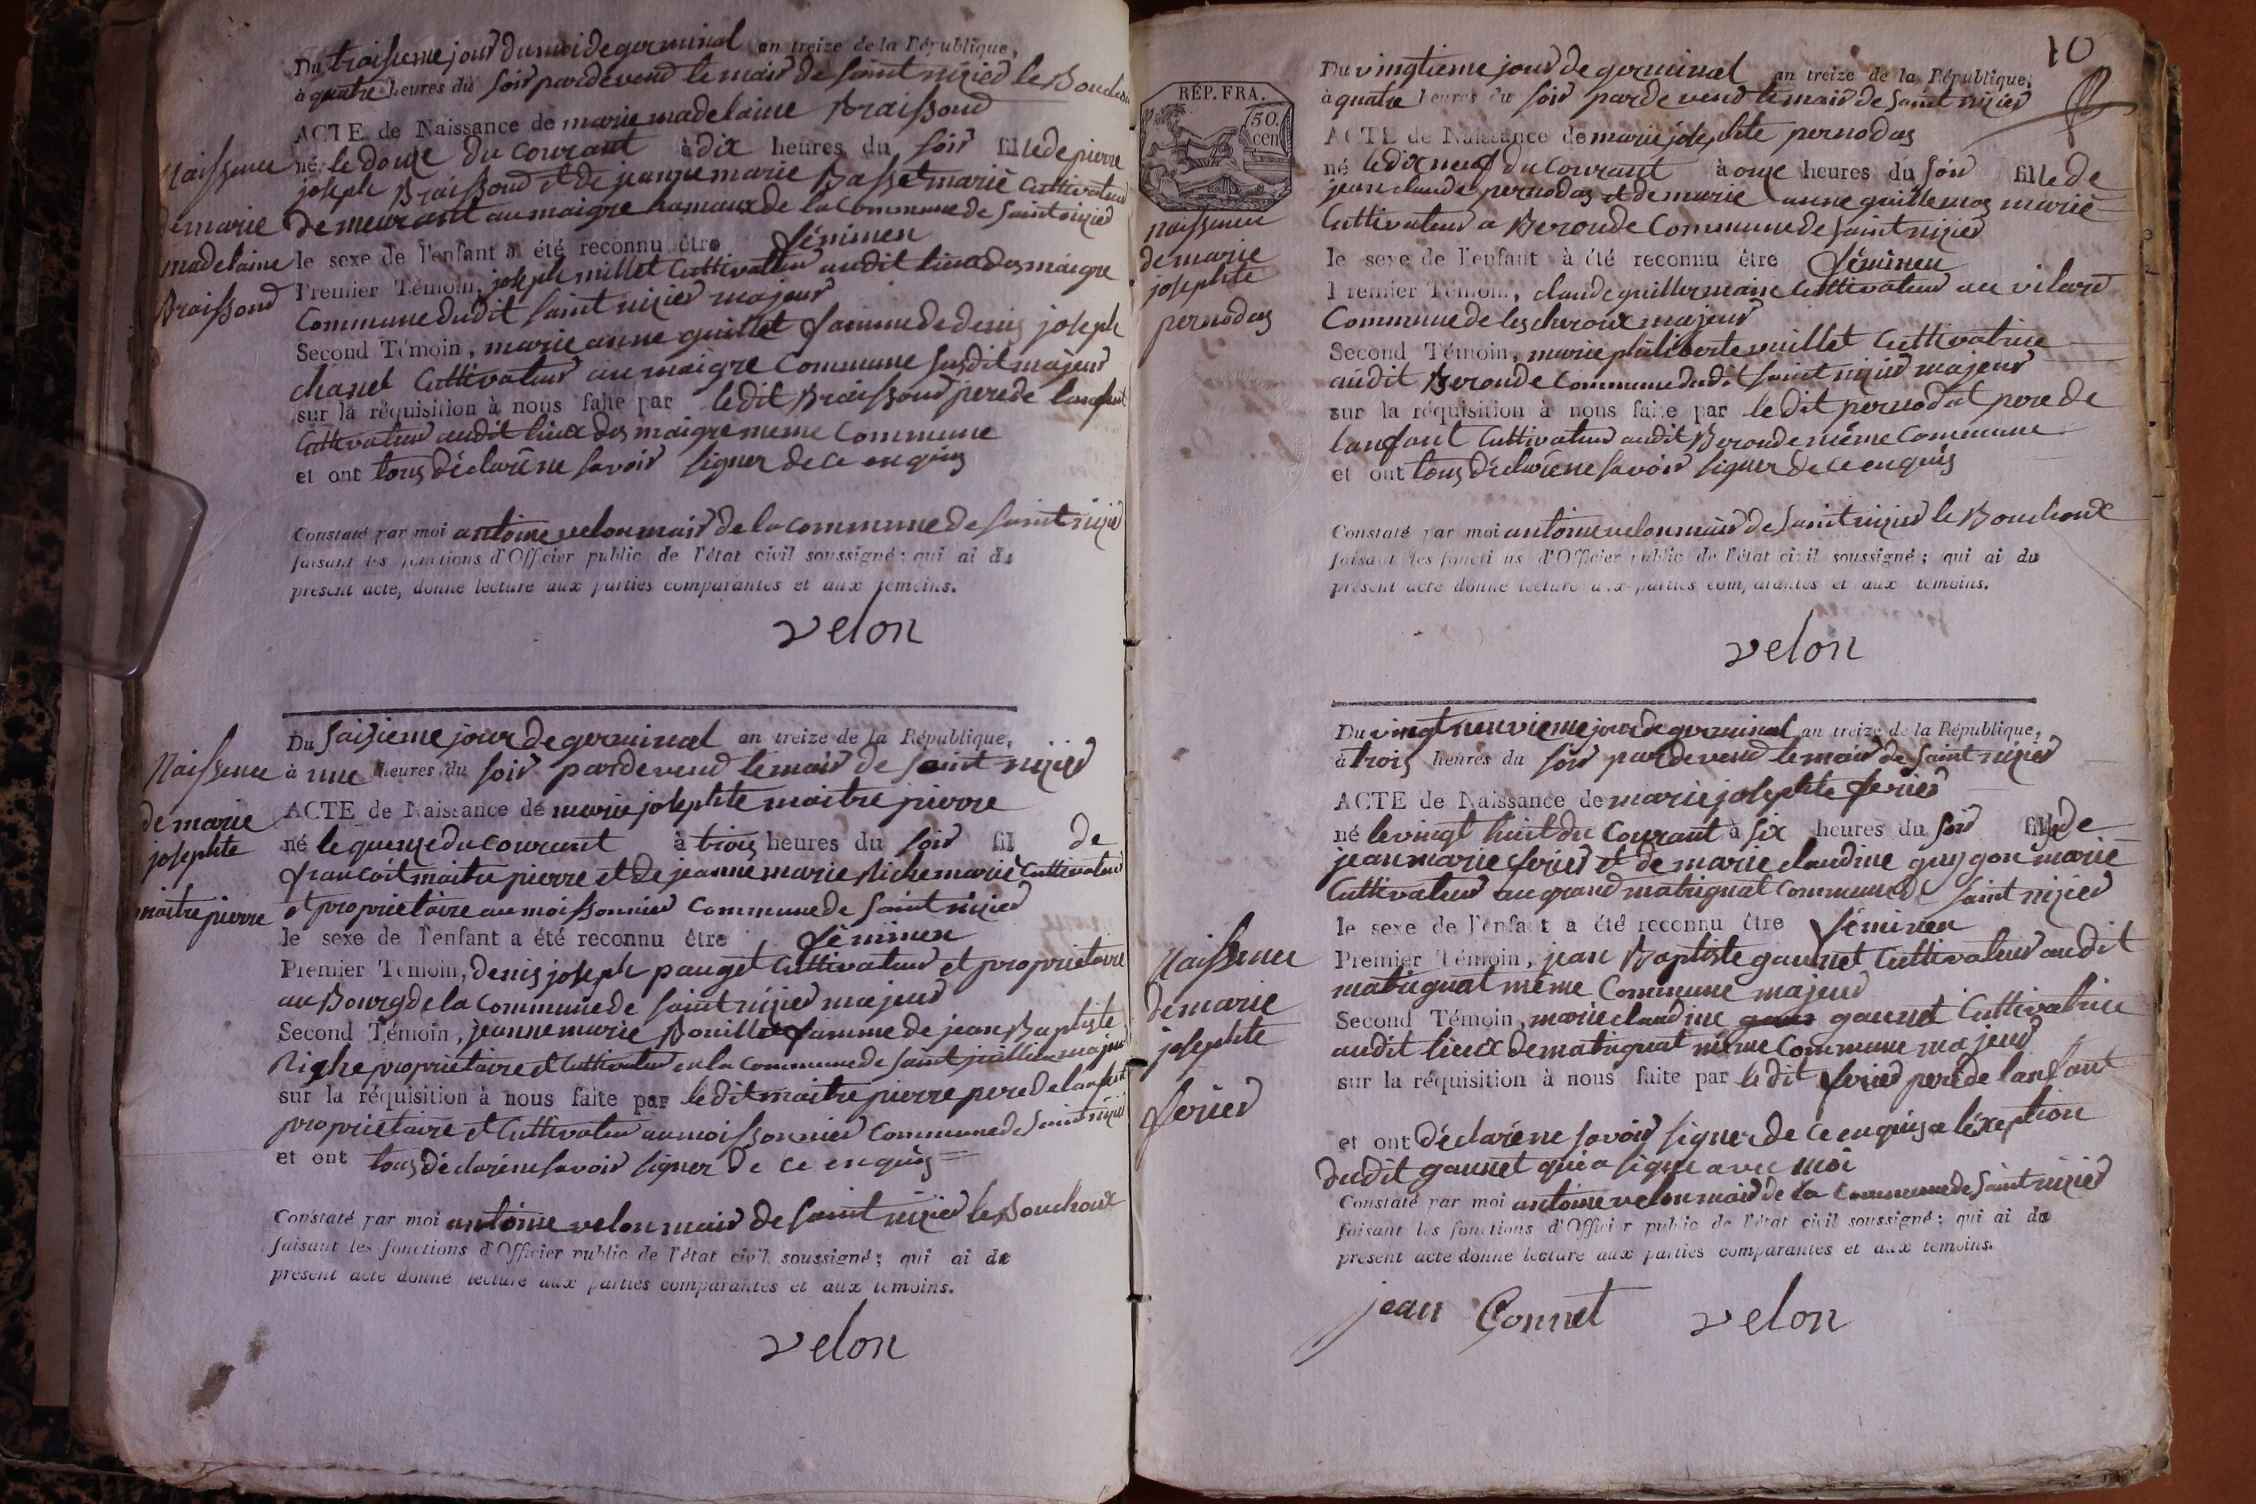 Du traisieme jour du moi de germinal an treize de la République,
à quatre heures du soir pardevend le mair de saint nizier le Bouchoux
ACTE de Naissance de marie madelaine Braissoud
né le douze du courant à dix heures du soir fille de pierre
joseph Braissoud et de jeanne marie Basset marié Cultivateur
demeurant au maigre hamaux de la Commune de saint nizier
le sexe de l'enfant a été reconnu être féminen
Premier Témoin, joseph millet Cultivateur audit lieux des maigre
Commune dudit saint nizier majeur
Second Témoin, marie anne guillet famme de denis joseph
chanel Cultivateur au maigre Commune susdit majeur
sur la réquisition à nous faite par ledit Braissoud pere de lanfant
Cultivateur audit lieux des maigre meme Commune
et ont tous déclaré ne savoir signer de ce enquis
Naissence
de marie
madelaine
Braissoud
Constaté par moi antoine velon mair de la commune de saint nizier
faisant les fonctions d'Officier public de l'état civil soussigné; qui ai du
présent acte, donné lecture aux parties comparantes et aux témoins.
velon
Du saizieme jour de germinal an treize de la République,
à une heures du soir pardevend le mair de saint nizier
ACTE de Naissance de marie josephte maitre pierre
né le quenze du courant à trois heures du soir fil de
francoit maitre pierre et de jeanne marie Riche marié Cultivateur
et proprietaire au moissonnier Commune de saint nizier
le sexe de l'enfant a été reconnu être féminen
Premier Témoin, denis joseph pauget Cultivateur et proprietaire
au Bourg de la Commune de saint nizier majeur
Second Témoin, jeanne marie Bouillet famme de jean Baptiste
Riche proprietaire et Cultivateur en la Commune de saint juillien majeur
sur la réquisition à nous faite par ledit maitre pierre pere de lanfant
proprietaire et Cultivateur au moissonnier Commune de saint nizier
et ont tous déclaré ne savoir signer de ce enquis
Naissence
de marie
josephte
maitre pierre
Constaté par moi antoine velon mair de saint nizier le Bouchoux
faisant les fonctions d'Officier public de l'état civil soussigné; qui ai du
présent acte donné lecture aux parties comparantes et aux témoins.
velon
10
RÉP. FRA.
50.
cen
Du vingtieme jour de germinal an treize de la République,
à quatre heures du soir pardevend le mair de saint nizier
ACTE de Naissance de marie josephte pernodas
né le dix neuf du courant à onze heures du soir fille de
jean claude pernodas et de marie anne guillemos marié
Cultivateur a Beronde Commune de saint nizier
le sexe de l'enfant à été reconnu être féminen
Premier Témoin, claude guillermain Cultivateur au vilard
Commune de lescheroux majeur
Second Témoin, marie philiberte vuillet Cultivatrice
audit Beronde Commune dudit saint nizier majeur
sur la réquisition à nous faite par ledit pernodat pere de
lanfant Cultivateur audit Beronde même Commune
et ont tous déclaré ne savoir signer de ce enquis
naissence
de marie
josephte
pernodas
Constaté par moi antoine velon mair de saint nizier le Bouchoux
faisant les fonctions d'Officier public de l'état civil soussigné; qui ai du
présent acte donné lecture aux parties comparantes et aux témoins.
velon
Du vingt neuvieme jour de germinal an treize de la République,
à trois heures du soir pardevend le mair de saint nizier
ACTE de Naissance de marie josephte ferier
né le vingt huit du Courant à six heures du soir fille de
jean marie ferier et de marie claudine guygon marié
Cultivateur au grand matrignat Commune de saint nizier
le sexe de l'enfant a été reconnu être féminen
Premier Témoin, jean Baptiste gaunet Cultivateur audit
matrignat même Commune majeur
Second Témoin, marie claudine gaunet Cultivatrice
audit lieux de matrignat même Commune majeur
sur la réquisition à nous faite par ledit ferier pere de lanfant
et ont déclaré ne savoir signer de ce enquis a léxeption
dudit gaunet qui a signe avec moi
Naissence
de marie
josephte
ferier
Constaté par moi antoine velon mair de la Commune de saint nizier
faisant les fonctions d'Officier public de l'état civil soussigné; qui ai du
présent acte donné lecture aux parties comparantes et aux témoins.
jean Gonnet velon